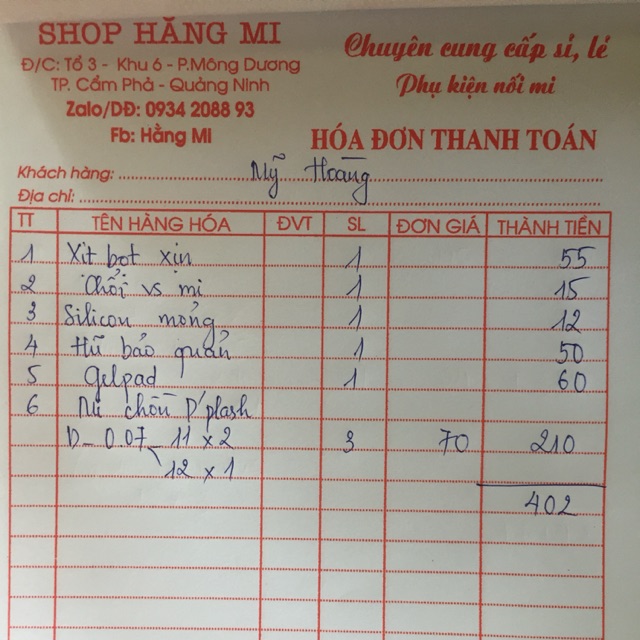 SHOP HẰNG MI
Đ/C: Tổ 3 - Khu 6 - P.Mông Dương
TP. Cẩm Phả - Quảng Ninh
Zalo/DĐ: 0934 2088 93
Fb: Hằng Mi
Chuyên cung cấp sỉ, lẻ
Phụ kiện nối mi
HÓA ĐƠN THANH TOÁN
Khách hàng: Mỹ Hoàng
Địa chỉ:
TT TÊN HÀNG HÓA ĐVT SL ĐƠN GIÁ THÀNH TIỀN
1 Xịt bọt xịn 1 55
2 Chổi vs mi 1 15
3 Silicon mỏng 1 12
4 Hũ bảo quản 1 50
5 Gelpad 1 60
6 Mi chồn D'plash
D - 0.07 - 11 x 2 3 70 210
12 x 1
402